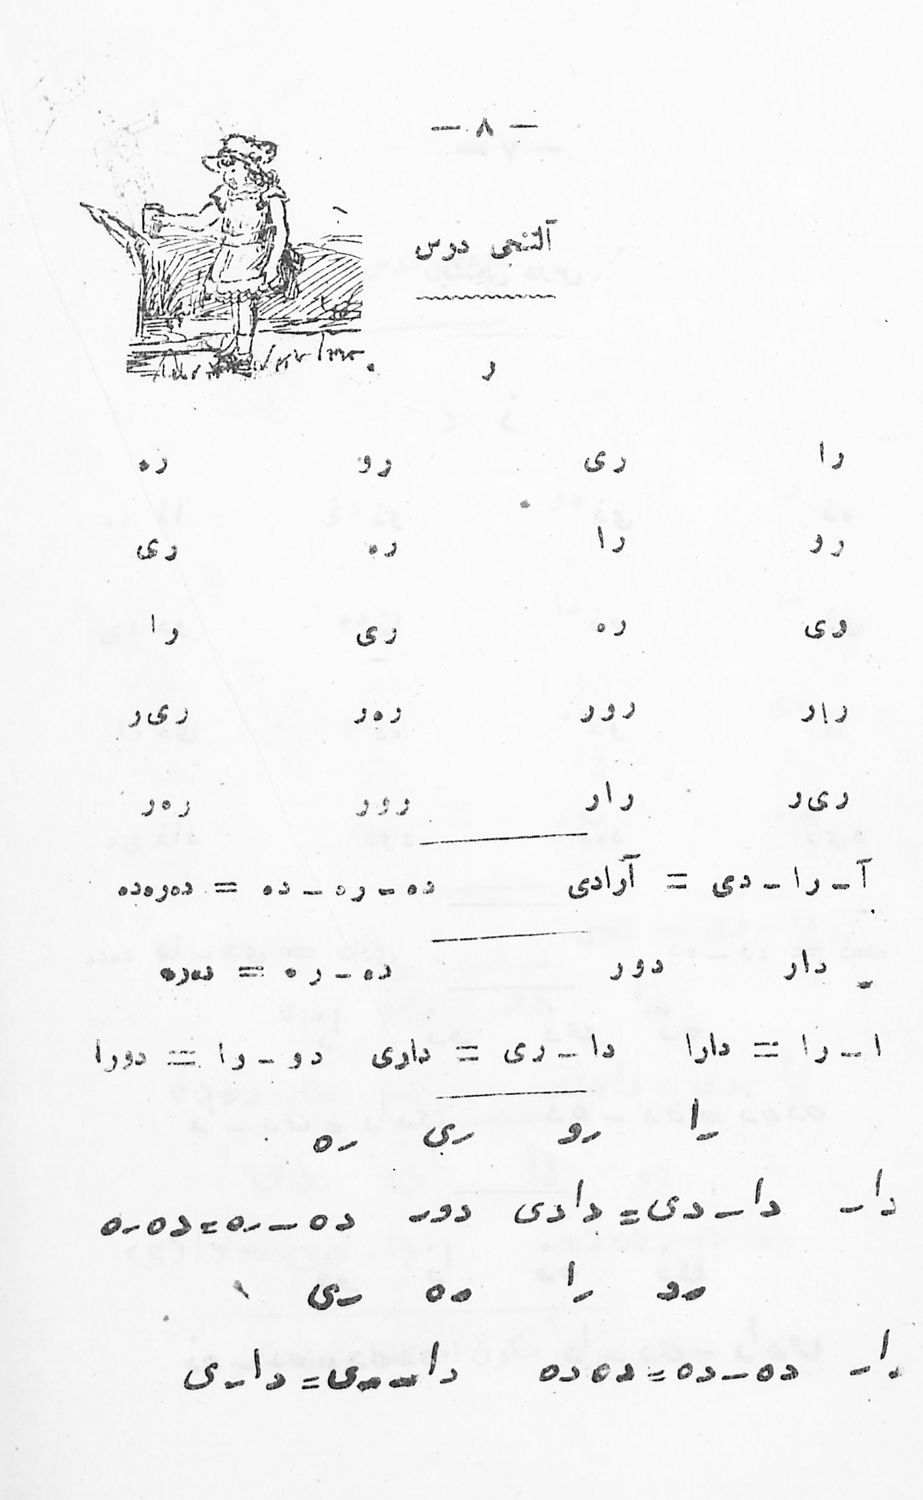 — ٨ —
آلتنجی درس
ر
را ری رو ره
رو را ره ری
وی ره ری را
رار رور ره‌ر ری‌ر
ری‌ر رار رور ره‌ر
آ ـ را ـ دی = آرادی ده ـ ره ـ ده = ده‌ره‌ده
دار دور ده ـ ره = ده‌ره
ا ـ را = دارا دا ـ ری = داری دو ـ را = دورا
را رو ری ره
دار دا ـ دی = دادی دور ده ـ ره = ده‌ره
رو را ره ری
دار ده ـ ده = ده‌ده دا ـ ری = داری